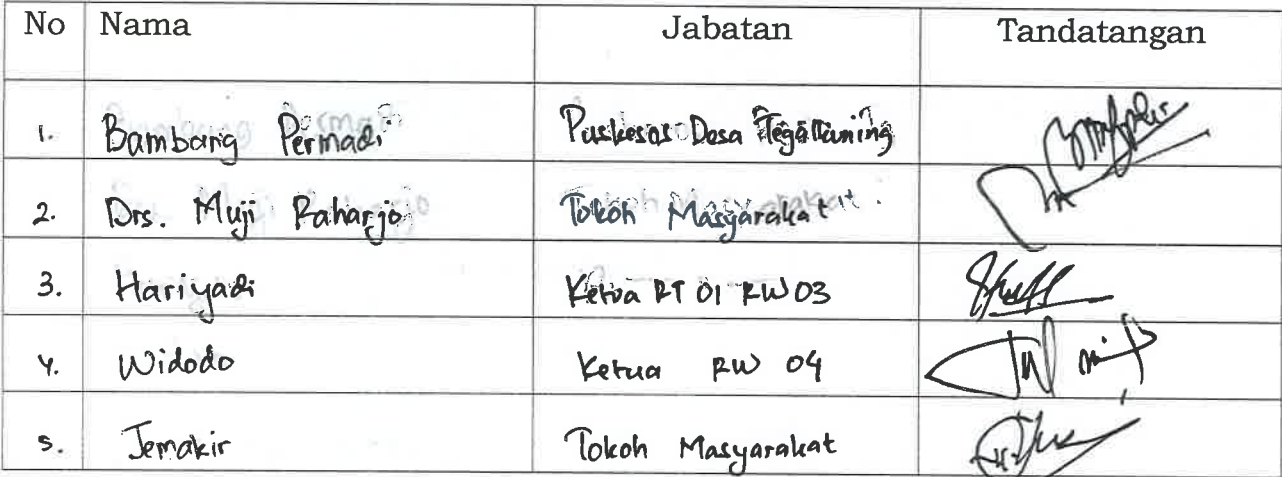 No Nama Jabatan Tandatangan
1. Bambang Permadi Puskesos Desa Tegalkuning
2. Drs. Muji Raharjo Tokoh Masyarakat
3. Hariyadi Ketua RT 01 RW 03
4. Widodo Ketua RW 04
5. Jemakir Tokoh Masyarakat